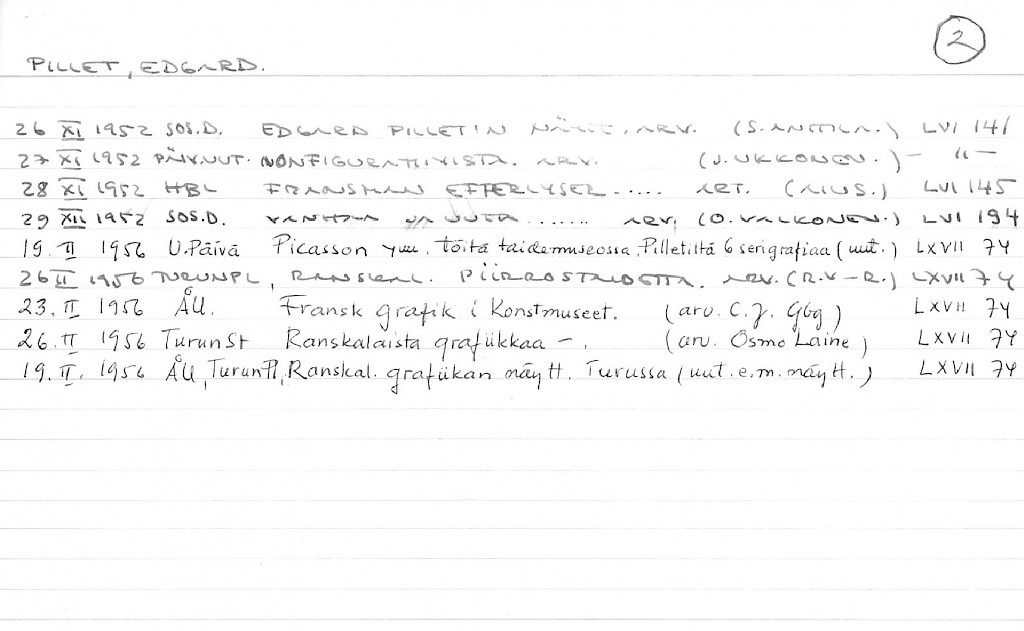 2
PILLET, EDGARD.
26 XI 1952 SOS.D. EDGARD PILLETIN NÄYTT. ARV. (S. ANTTILA.) LVI 141
27 XI 1952 PÄIV.UUT. NONFIGURATIIVISTA. ARV. (J. UKKONEN.) - " -
28 XI 1952 HBL FRANSMAN EFTERLYSER ..... ART. (AIUS.) LVI 145
29 XII 1952 SOS.D. VANHAA JA UUTTA ....... ARV. (O. VALKONEN.) LVI 194
19. II 1956 U.Päivä Picasson ym. töitä taidemuseossa, Pilletiltä 6 serigrafiaa (uut.) LXVII 74
26 II 1956 TURUNPL, RANSKAL. PIIRROSTAIDETTA. ARV. (R.V-R.) LXVII 74
23. II 1956 ÅU. Fransk grafik i Konstmuseet. (arv. C.J. Gbg) LXVII 74
26. II 1956 TurunSt Ranskalaista grafiikkaa -. (arv. Osmo Laine) LXVII 74
19. II. 1956 ÅU, TurunPl, Ranskal. grafiikan näytt. Turussa (uut. e.m. näytt.) LXVII 74